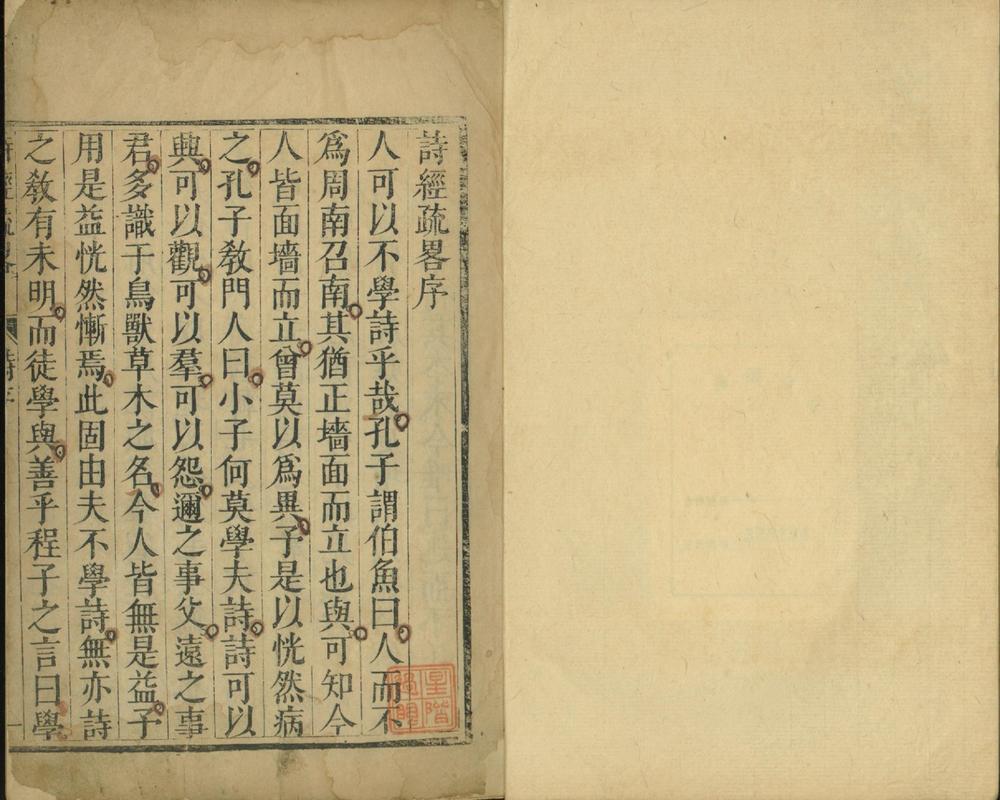 詩經疏畧序
人可以不學詩乎哉孔子謂伯魚曰人而不
爲周南召南其猶正墻面而立也與可知今
人皆面墻而立曾莫以爲異予是以恍然病
之孔子敎門人曰小子何莫學夫詩詩可以
興可以觀可以羣可以怨邇之事父遠之事
君多識于鳥獸草木之名今人皆無是益予
用是益恍然慚焉此固由夫不學詩無亦詩
之敎有未明而徒學與善乎程子之言曰學